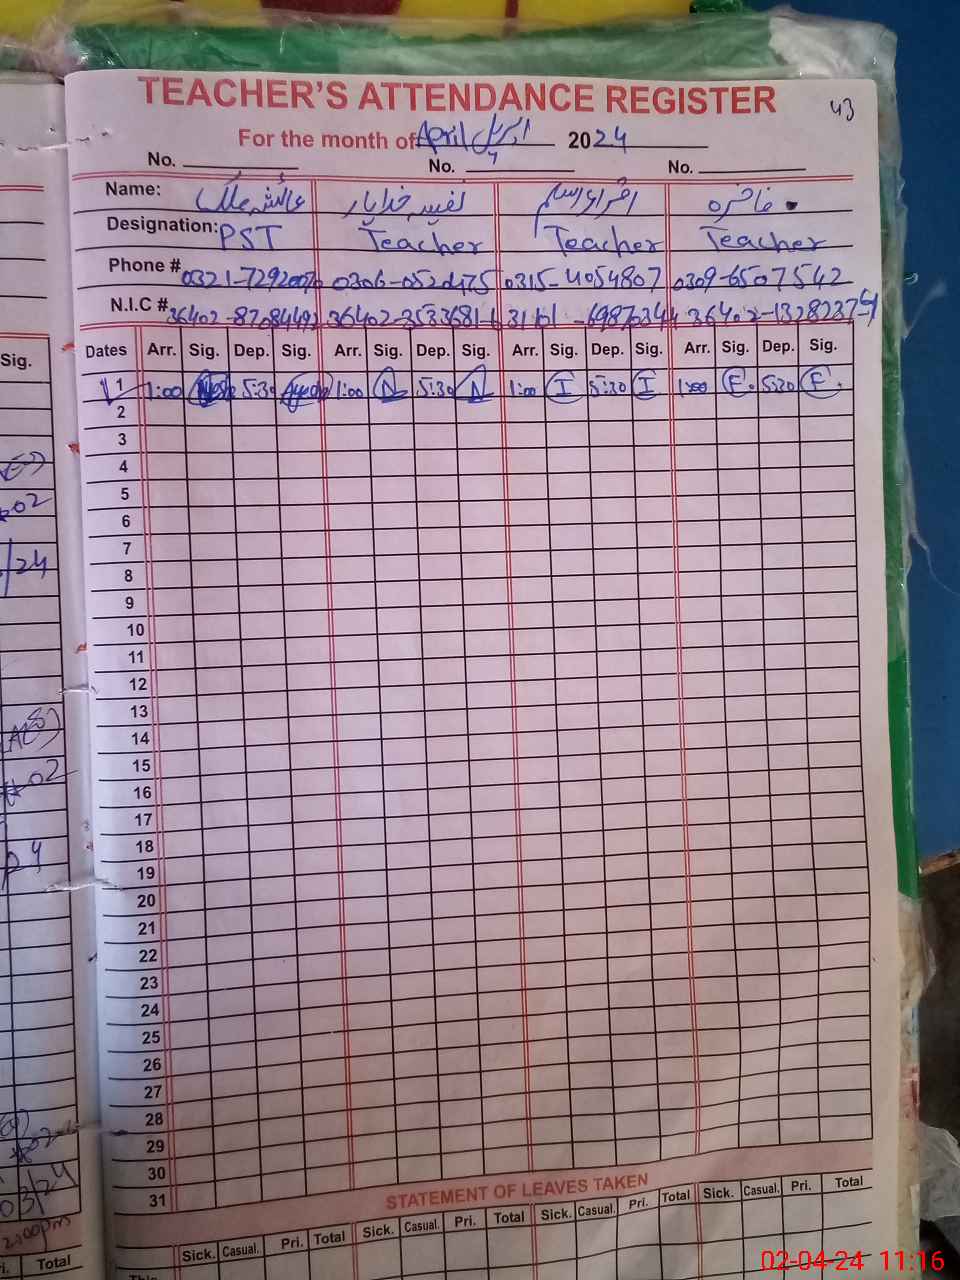 TEACHER'S ATTENDANCE REGISTER
43
For the month of April اپریل 2024
No. No. No.
Name: عائشہ ملک نفیسہ خدایار اقراء اسلم فاخرہ
Designation: PST Teacher Teacher Teacher
Phone # 0306-0520475 0315-4054807 0309-6507542
N.I.C #
Dates Arr. Sig. Dep. Sig. Arr. Sig. Dep. Sig. Arr. Sig. Dep. Sig. Arr. Sig. Dep. Sig.
1 1:00 5:30 Ayesha 1:00 N 5:30 N 1:00 I 5:30 I 1:00 F. 5:30 F.
2
3
4
5
6
7
8
9
10
11
12
13
14
15
16
17
18
19
20
21
22
23
24
25
26
27
28
29
30
31
STATEMENT OF LEAVES TAKEN
Sick. Casual. Pri. Total Sick. Casual. Pri. Total Sick. Casual. Pri. Total Sick. Casual. Pri. Total
This
Sig.
02
/24
02
24
03/24
2:00pm
Total
02-04-24 11:16